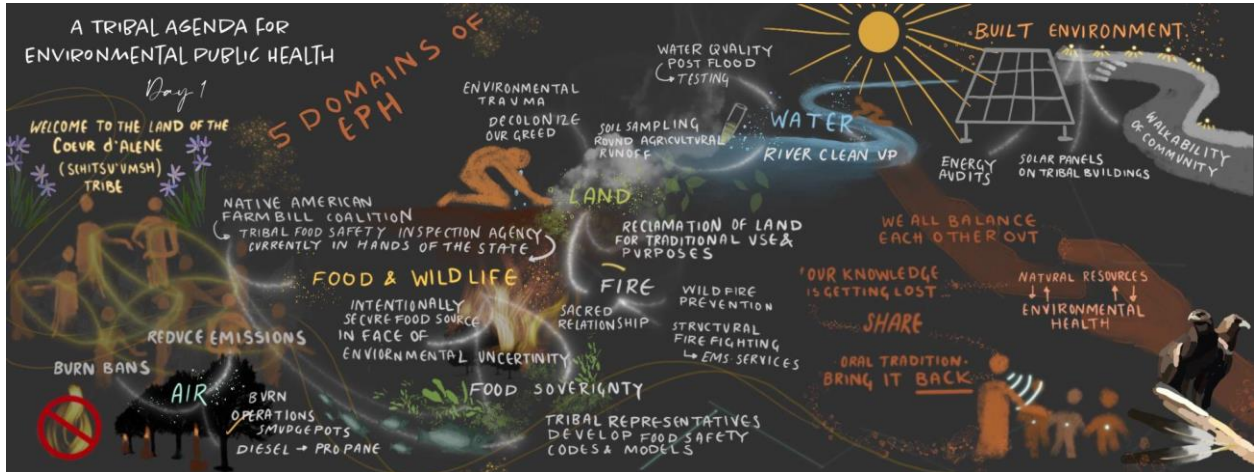 A TRIBAL AGENDA FOR
ENVIRONMENTAL PUBLIC HEALTH
Day 1
WELCOME TO THE LAND OF THE
COEUR d'ALENE
(SCHITSU'UMSH)
TRIBE
5 DOMAINS OF
EPH
ENVIRONMENTAL
TRAUMA
DECOLONIZE
OUR GREED
WATER QUALITY
POST FLOOD
TESTING
SOIL SAMPLING
ROUND AGRICULTURAL
RUNOFF
WATER
RIVER CLEAN UP
BUILT ENVIRONMENT
ENERGY
AUDITS
SOLAR PANELS
ON TRIBAL BUILDINGS
WALKABILITY
OF COMMUNITY
LAND
RECLAMATION OF LAND
FOR TRADITIONAL USE &
PURPOSES
NATIVE AMERICAN
FARMBILL COALITION
TRIBAL FOOD SAFETY INSPECTION AGENCY
CURRENTLY IN HANDS OF THE STATE
FOOD & WILDLIFE
INTENTIONALLY
SECURE FOOD SOURCE
IN FACE OF
ENVIORNMENTAL UNCERTINITY
FIRE
SACRED
RELATIONSHIP
WILD FIRE
PREVENTION
STRUCTURAL
FIRE FIGHTING
EMS SERVICES
FOOD SOVERIGNTY
TRIBAL REPRESENTATIVES
DEVELOP FOOD SAFETY
CODES & MODELS
REDUCE EMISSIONS
BURN BANS
AIR
BURN
OPERATIONS
SMUDGEPOTS
DIESEL → PROPANE
WE ALL BALANCE
EACH OTHER OUT
"OUR KNOWLEDGE
IS GETTING LOST...
SHARE
ORAL TRADITION-
BRING IT BACK
NATURAL RESOURCES
ENVIRONMENTAL
HEALTH